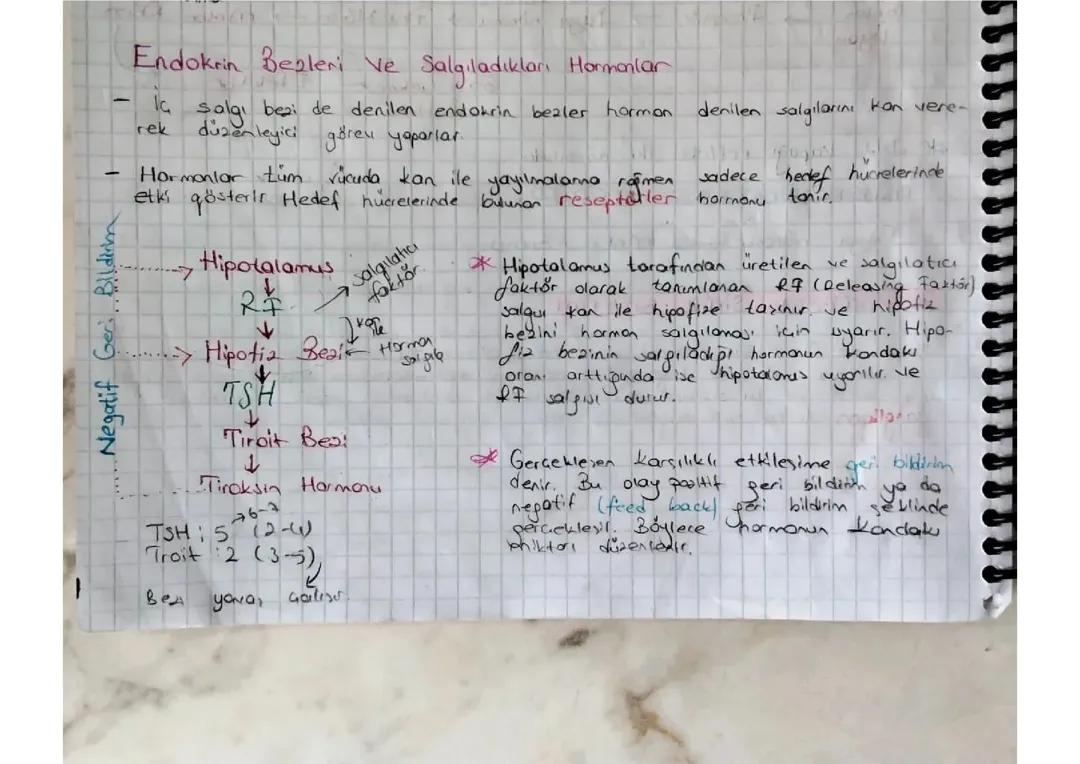 Endokrin Bezleri ve Salgıladıkları Hormonlar
- İç salgı bezi de denilen endokrin bezler hormon denilen salgılarını kan vere-
rek düzenleyici görev yaparlar.
- Hormonlar tüm vücuda kan ile yayılmalarına rağmen sadece hedef hücrelerinde
etki gösterir Hedef hücrelerinde bulunan reseptörler hormonu tanır.
Negatif Geri Bildirim
Hipotalamus
salgılatıcı
faktör.
RF
Hipofiz Bezi
Hormon
TSH
Tiroit Bezi
Tiroksin Hormonu
6-7
TSH : 5 (2-4)
Troit : 2 (3-5)
Bez yavaş
* Hipotalamus tarafından üretilen ve salgılatıcı
faktör olarak tanımlanan RF (Releasing Faktör)
salgısı kan ile hipofize taşınır ve hipofiz
bezini hormon salgılaması için uyarır. Hipo-
fiz bezinin salgıladığı hormonun kandaki
oranı arttığında ise hipotalamus uyarılır ve
RF salgısı durur.
* Gerçekleşen karşılıklı etkileşime geri bildirim
denir. Bu olay pozitif geri bildirim ya da
negatif (feed back) geri bildirim şeklinde
gerçekleşir. Böylece hormonun kandaki
miktarı düzenlenir.